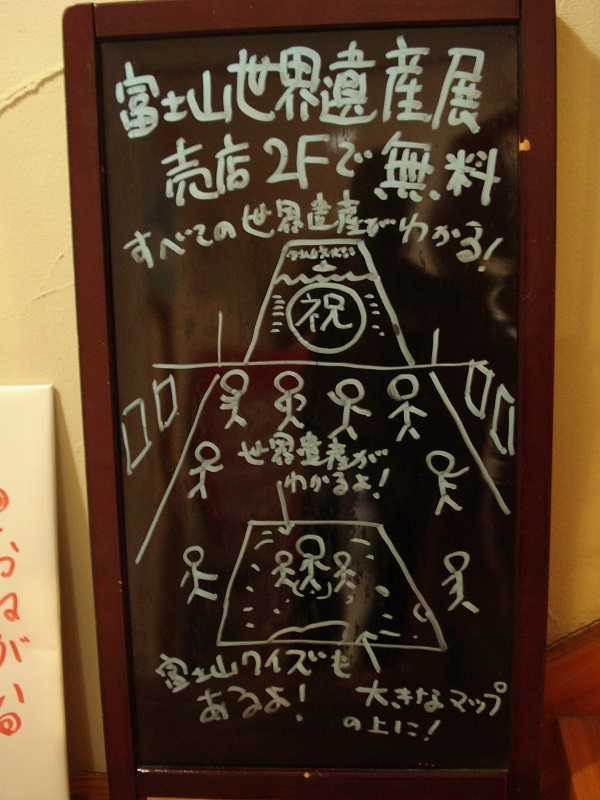 富士山世界遺産展
売店2Fで無料
すべての世界遺産がわかる!
祝
世界遺産が
わかるよ!
富士山クイズも
あるよ!
大きなマップ
の上に!
おねがい